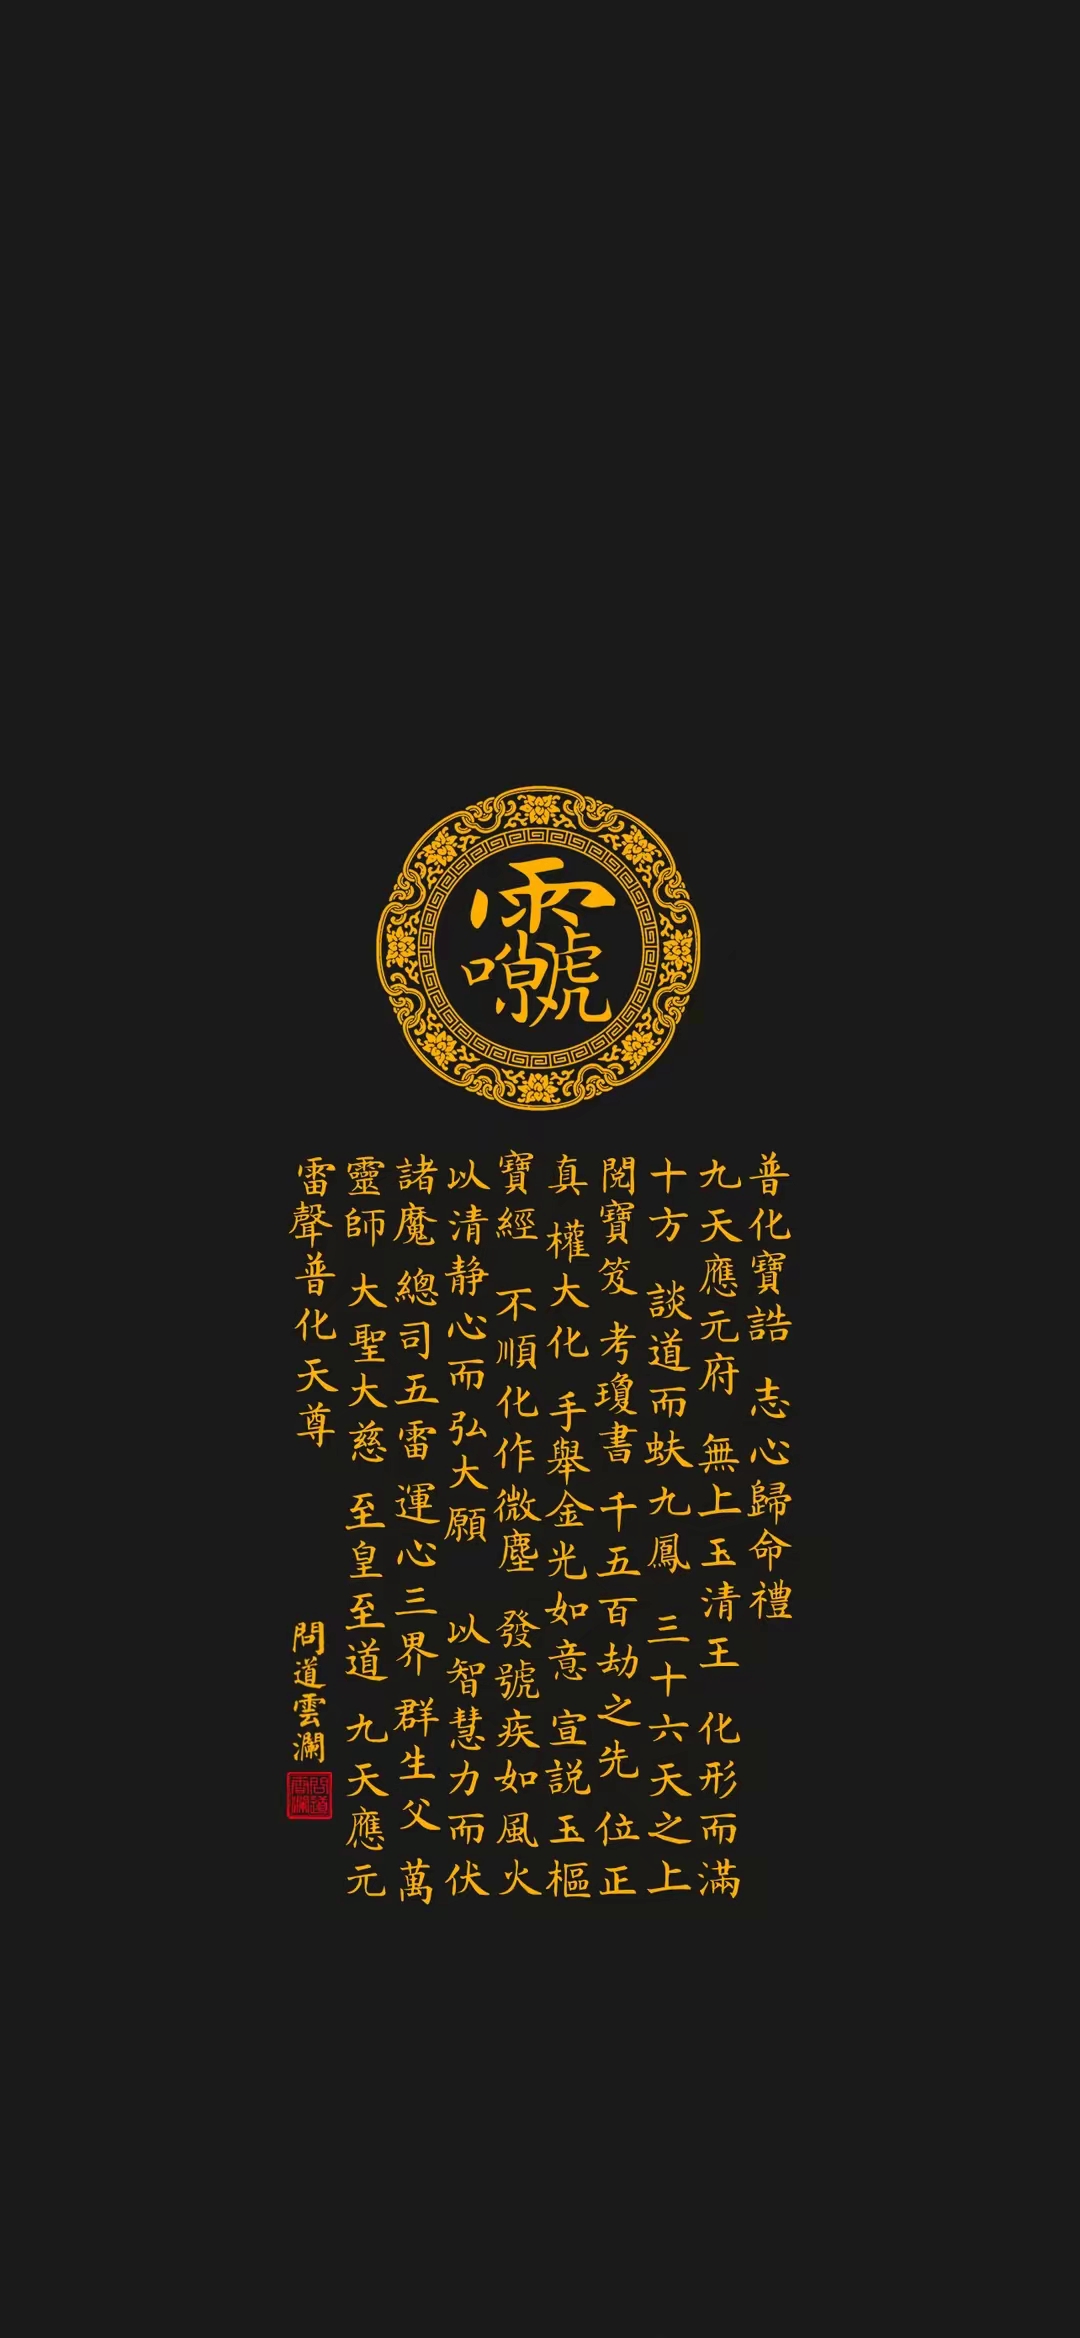 普化寶誥 志心歸命禮
九天應元府 無上玉清王 化形而滿
十方 談道而趺九鳳 三十六天之上
閱寶笈 考瓊書 千五百劫之先 位正
真 權大化 手舉金光如意 宣説玉樞
寶經 不順化作微塵 發號疾如風火
以清静心而弘大願 以智慧力而伏
諸魔 總司五雷 運心三界 群生父 萬
靈師 大聖大慈 至皇至道 九天應元
雷聲普化天尊
問道雲瀾
問道雲瀾